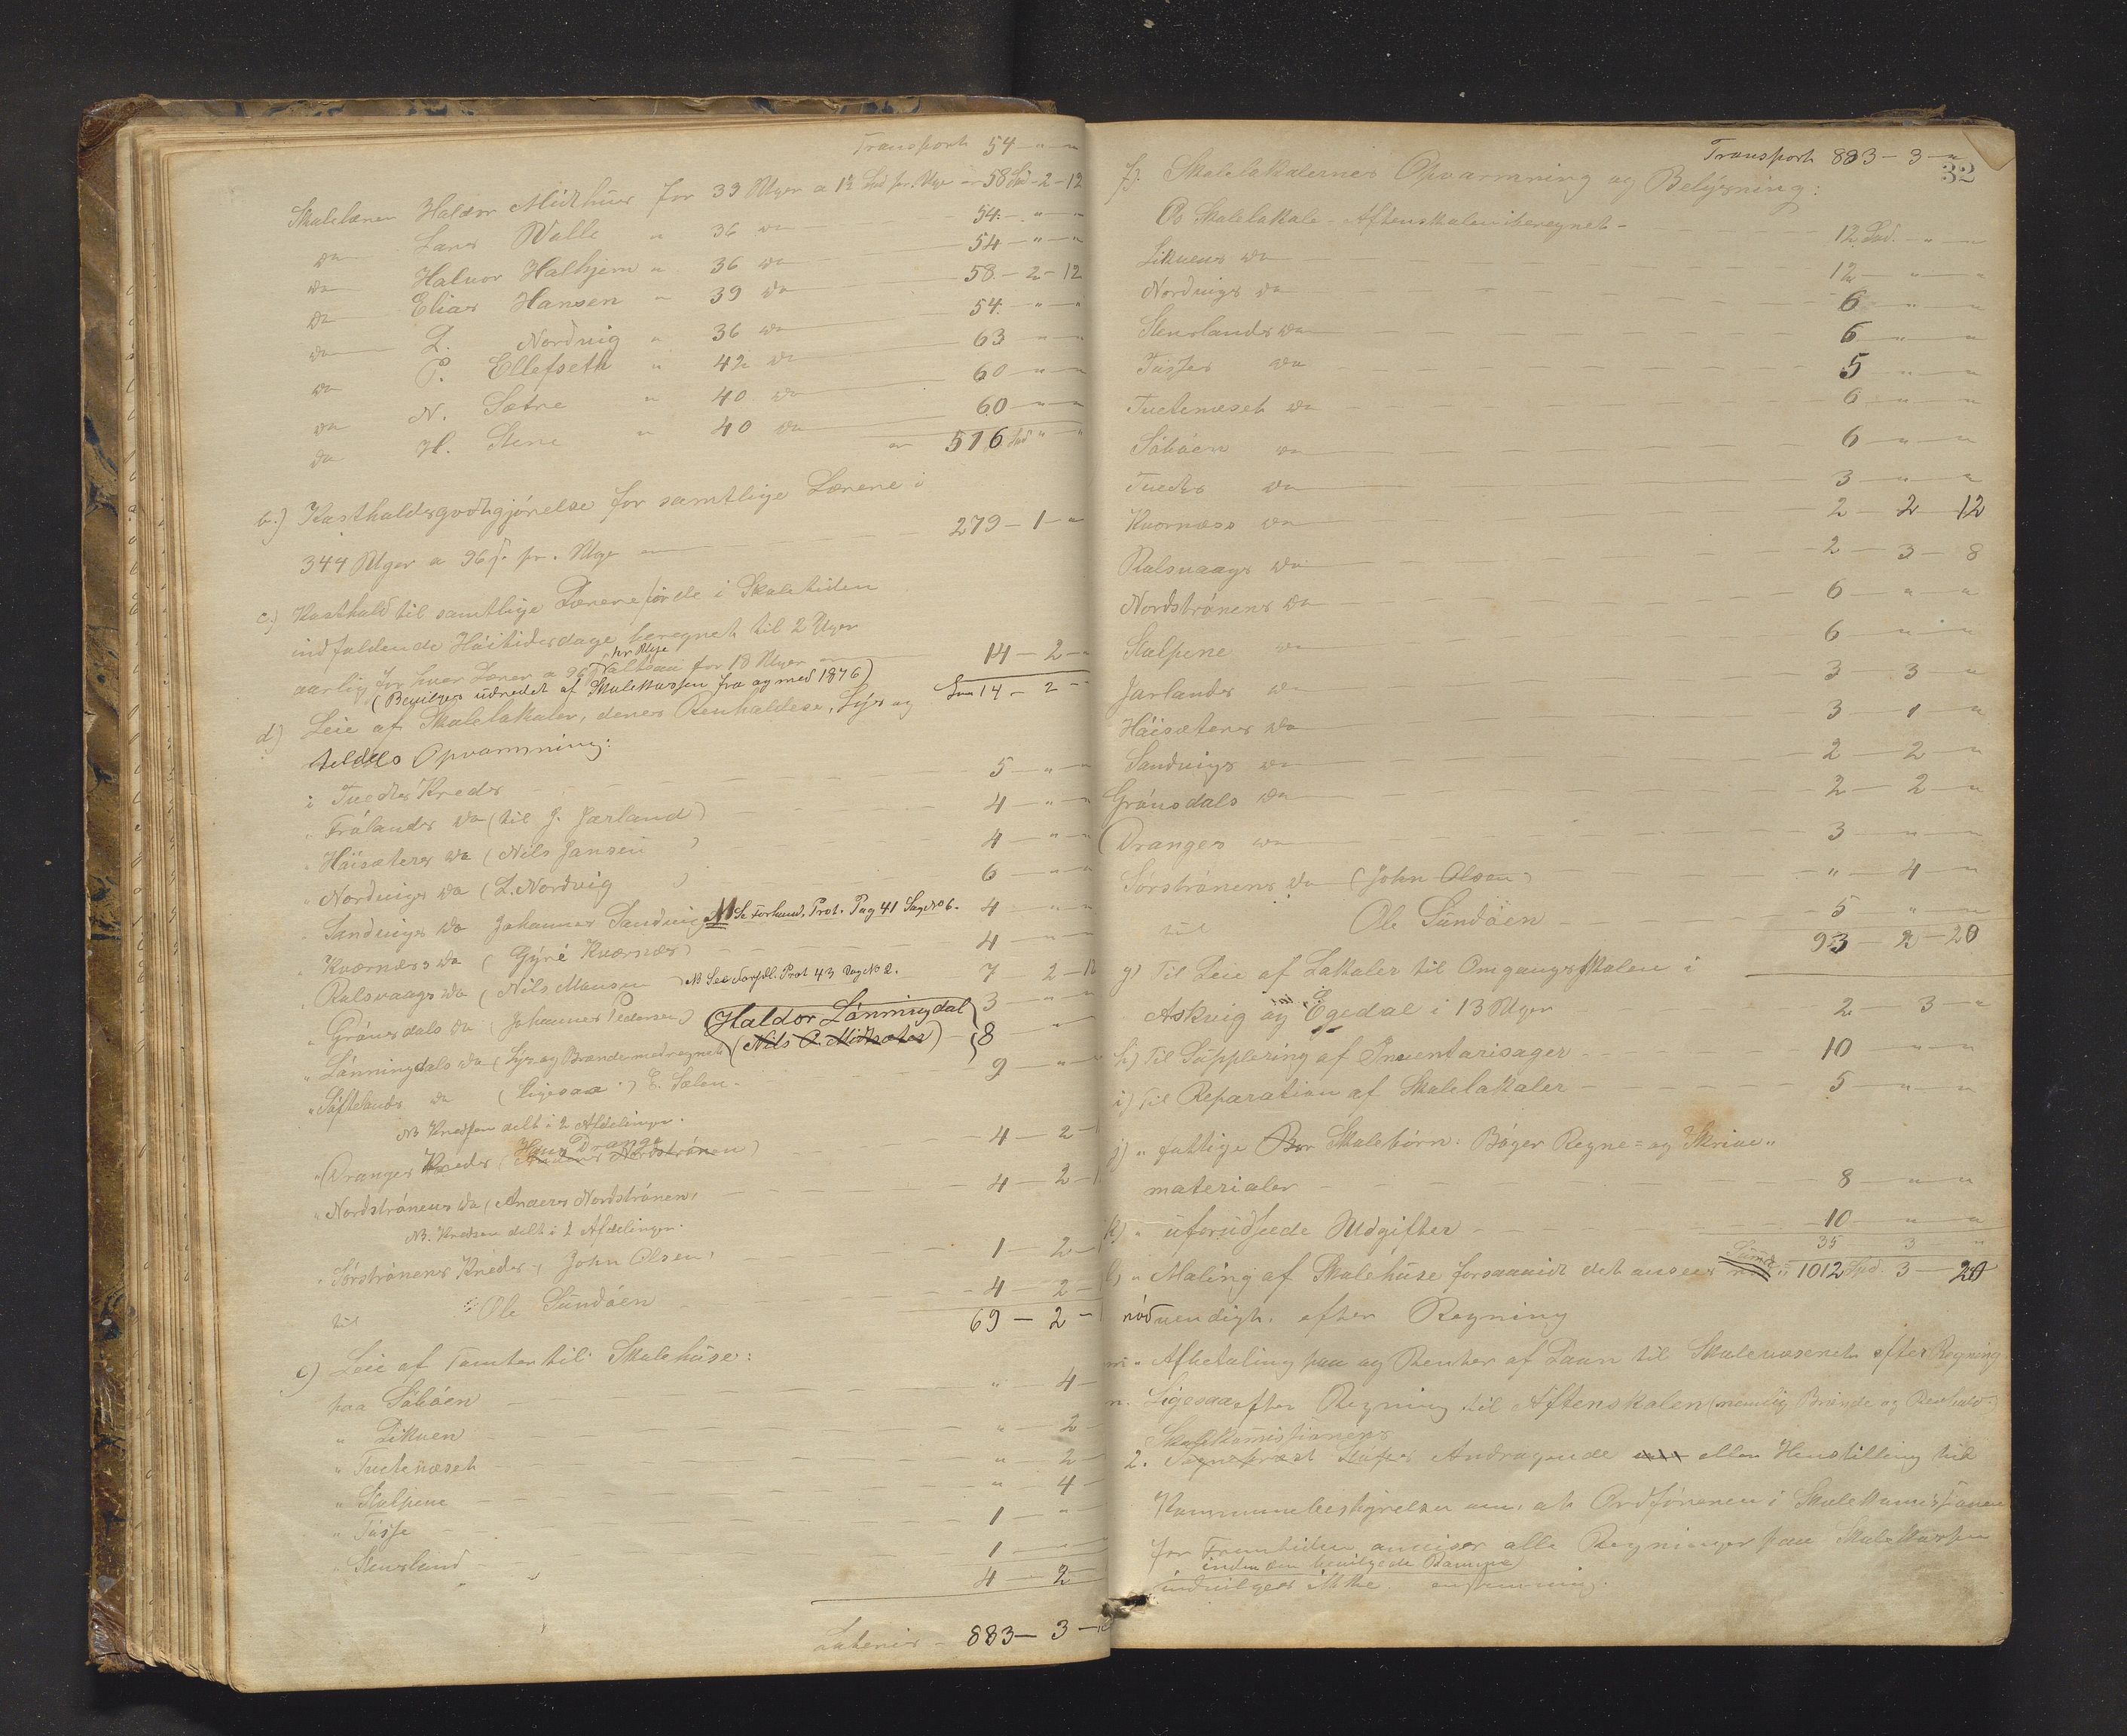 Transport 54 — " — "
Skolelærer Haldor Midthus for 39 Uger a 1½ Spd pr. Uge = 58 Spd - 2 - 12
do Lars Valle " 36 do 54 — " — "
do Halvor Halhjem " 36 do 54 — " — "
do Elias Hansen " 39 do 58 — 2 — 12
do L. Nordvig " 36 do 54 — " — "
do P. Ellefseth " 42 do 63 — " — "
do N. Sætre " 40 do 60 — " — "
do H. Stene " 40 do 60 — " — "
= 516 Spd " — "
b.) Kostholdsgodtgjörelse for samtlige Lærere i
344 Uger a 96 ß. pr. Uge = 279 — 1 — "
c.) Kosthold til samtlige Lærere for de i Skoletiden
indfaldende Höitidsdage beregnet til 2 Uger
aarlig for hver Lærer a 96 ß pr Uge altsaa for 18 Uger = 14 — 2 — "
(Bevilges udredet af Skolekassen fra og med 1876) Sum 14 — 2 — "
d) Leie af Skolelokaler, deres Renholdese, Lys og
tildels Opvarmning:
i Tuedts Kreds 5 — " — "
" Frölands do (til J. Jarland) 4 — " — "
" Höisæters do (Nils Jansen) 4 — " — "
" Nordvigs do (L. Nordvig) 6 — " — "
" Sandvigs do Johannes Sandvig NB Se Forhand. Prot. Pag 41 Sag No 6. 4 — " — "
" Kværnæs do (Gyri Kværnæs) 4 — " — "
" Rolsvaags do (Nils Monsen) NB See Forhdl. Prot 43 Sag No 2. 7 2 — 12
" Grönsdals do (Johannes Pedersen) 3 — " — "
" Lönningdals do (Lys og Brænde medregnet) (Haldor Lönningdal (Nils O. Midtsæter) 8 — "
" Söftelands do (Ligesaa) E. Sælen. 9 — " — "
NB Kredsen delt i 2 Afdelinger.
" Dranges Kreds (Hans Drange Anders Nordströnen) 4 — 2 —
" Nordströnens do (Anders Nordströnen) 4 — 2 —
NB. Kredsen delt i 2 Afdelinger.
" Sörströnens Kreds, John Olsen, 1 — 2 —
til Ole Sundöen 4 — 2 —
69 — 2 —
e) Leie af Tomter til Skolehuse:
paa Söböen " — 4 —
" Likuen " — 2 —
" Tuetenæset " — 2 —
" Skolpene " — 4 —
" Tösse 1 — " —
" Skurland 1 — —
4 — 2 —
Lateris — 883 — 3 —
Transport 883 — 3 — "
32
f). Skolelokalernes Opvarmning og Belysning:
Os Skolelokale - Aftenskolen iberegnet - 12 Spd. — " — "
Likuens do 12 — " — "
Nordvigs do 6 — " — "
Skurlands do 6 — " — "
Tösses do 5 — " — "
Tuetenæset do 6 — " — "
Söböen do 6 — " — "
Tuedts do 3 — " — "
Kvernæss do 2 — 2 — 12
Rolsvaags do 2 — 3 — 8
Nordströnens do 6 — " — "
Skolpene do 6 — " — "
Jarlands do 3 — 3 — "
Höisæters do 3 — 1 — "
Sandvigs do 2 — 2 — "
Grönsdals do 2 — 2 — "
Dranges do 3 — " — "
Sörströnens do (John Olsen) " — 4 — "
til Ole Sundöen 5 — " — "
93 — 2 — 20
g) Til Leie af Lokaler til Omgangsskolen i
Askvig og Egedal i 13 Uger 2 — 3 — "
h) Til Supplering af Inventarisager 10 — " — "
i) Til Reparation af Skolelokaler 5 — " — "
j) " fattige Bor Skolebörn: Böger Regne- og Skrive-
materialer 8 — " — "
k) " uforudseede Udgifter 10 — " — "
35 3 "
l) " Maling af Skolehuse forsaavidt det ansees nö Summa 1012 Spd. 3 — 20
nödvendigt, efter Regning
m. " Afbetaling paa og Renter af Laan til Skolevæsenet efter Regning
n. Ligesaa efter Regning til Aftenskolen (nemlig Brænde og Renhold.)
Skolekommissionens
2. Sogneprest Andragende eller Henstilling til
Kommunebestyrelsen om, at Ordföreren i Skolekommissionen
for Fremtiden anviser alle Regninger paa Skolekassen
inden den bevilgede Ramme
indvilges ikke enstemmig.